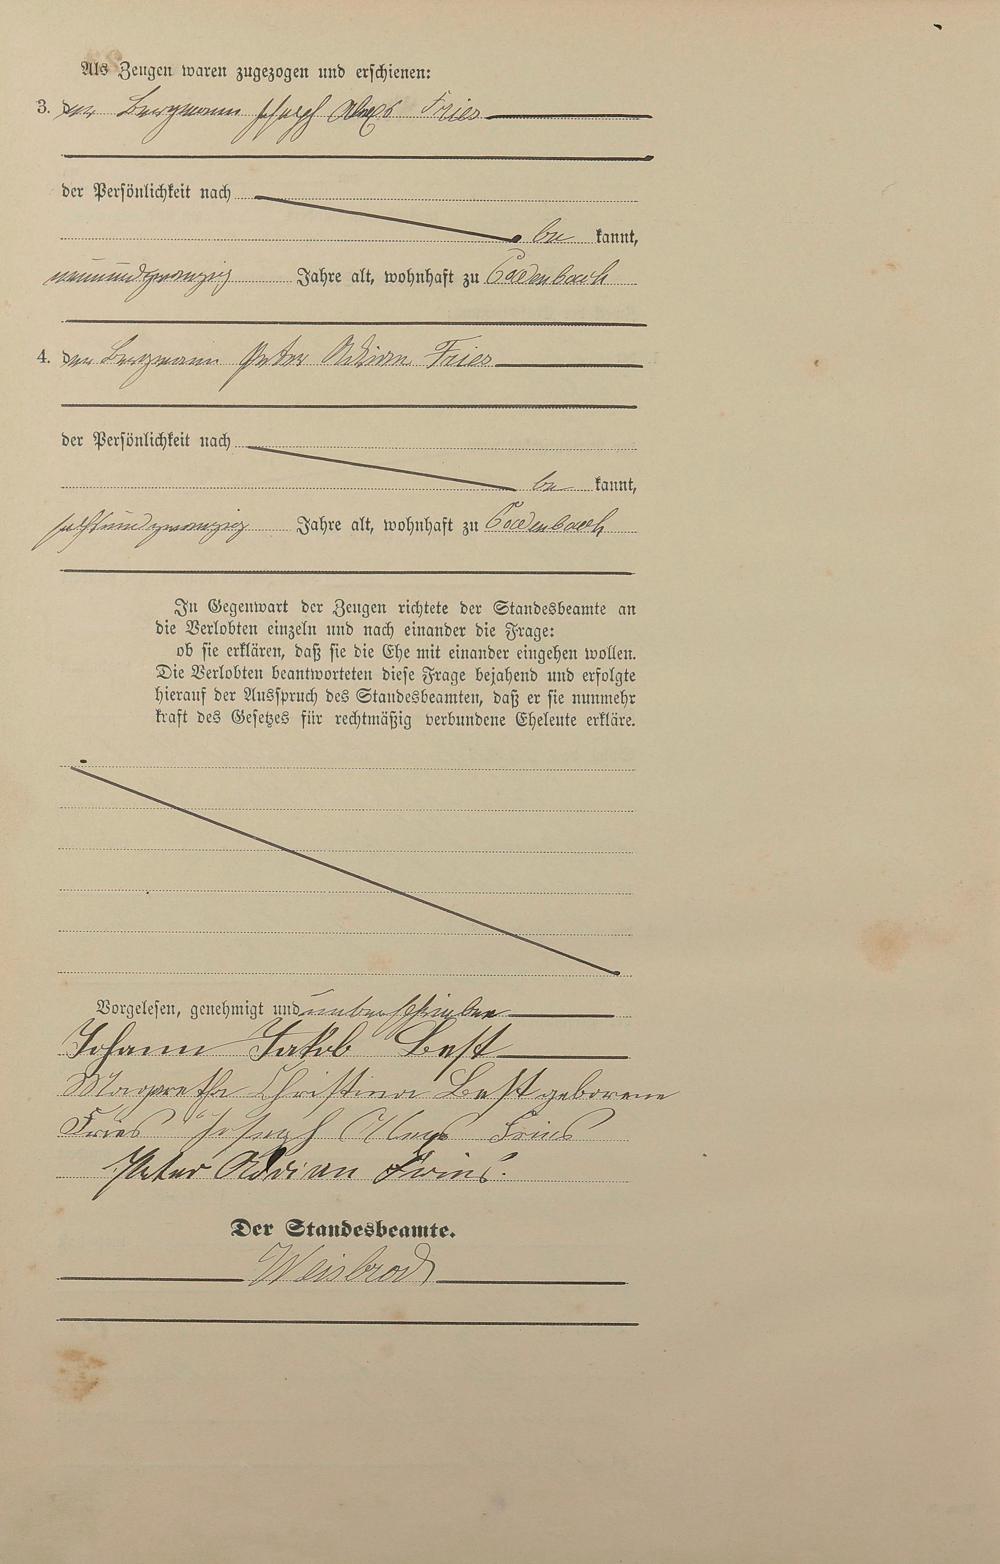 Als Zeugen waren zugezogen und erschienen:
3. der Bergmann Joseph Aloys Fries
der Persönlichkeit nach
be kannt,
neunundzwanzig Jahre alt, wohnhaft zu
4. der Bergmann Peter Adrian Fries
der Persönlichkeit nach
be kannt,
sechsundzwanzig Jahre alt, wohnhaft zu
In Gegenwart der Zeugen richtete der Standesbeamte an
die Verlobten einzeln und nach einander die Frage:
ob sie erklären, daß sie die Ehe mit einander eingehen wollen.
Die Verlobten beantworteten diese Frage bejahend und erfolgte
hierauf der Ausspruch des Standesbeamten, daß er sie nunmehr
kraft des Gesetzes für rechtmäßig verbundene Eheleute erkläre.
Vorgelesen, genehmigt und unterschrieben
Johann Jakob Best
Margaretha Christina Best geborene
Fries Joseph Aloys Fries
Peter Adrian Fries.
Der Standesbeamte.
Weisbrod